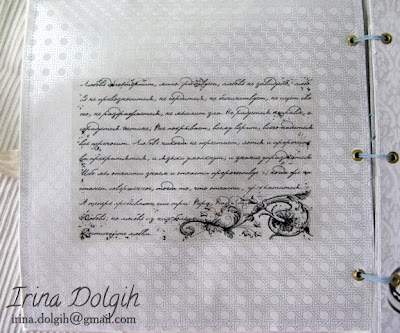 Любовь долготерпит, мило радствует, любовь не завидует, любо
не превозносится, не гордится, не бесчинствует, не ищет сво
его, не раздражается, не мыслит зла. Не радуется неправде, а
сорадуется истине. Все покрывает, всему верит, всего надеется
все переносит. Любовь никогда не перестает, хотя и пророчес
ва прекратятся, и языки умолкнут, и знание упразднится
Ибо мы отчасти знаем и отчасти пророчествуе когда же
станет совершенное, тогда то, что отчасти,
А теперь пребывают сии три: Вера,
Любовь, но любовь из них
Достигайте любви
Irina Dolgih
irina.dolgih@gmail.com